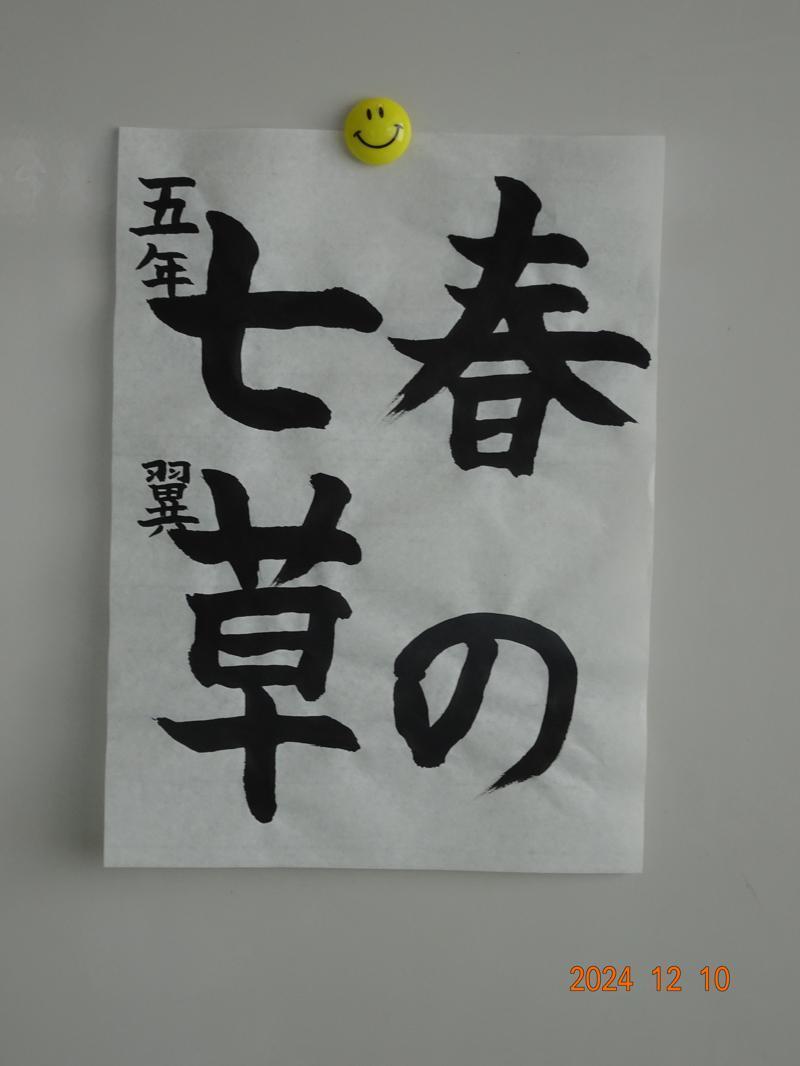 春の
七草
五年 翼
2024 12 10